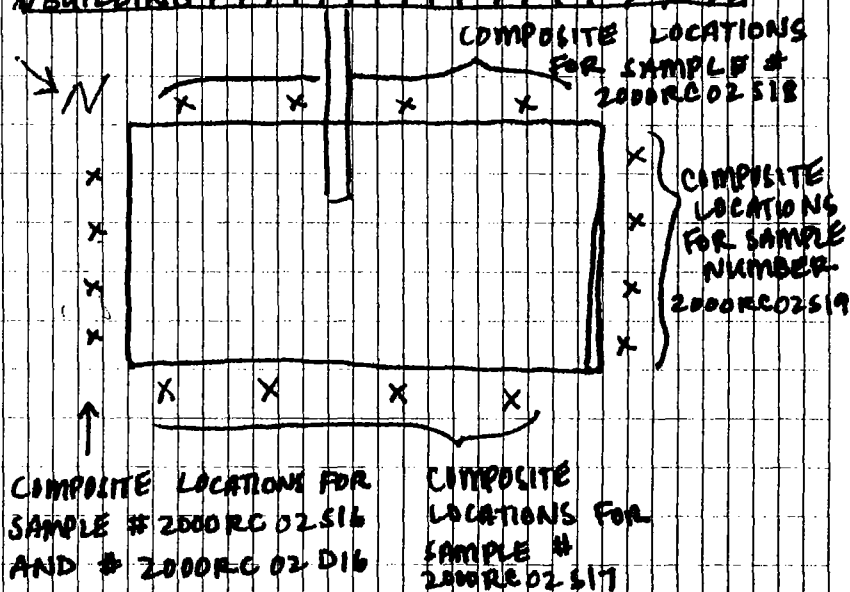 BUILDING
COMPOSITE LOCATIONS
FOR SAMPLE #
2000RC02S18
N
COMPOSITE
LOCATIONS
FOR SAMPLE
NUMBER
2000RC02S19
COMPOSITE LOCATIONS FOR
SAMPLE # 2000RC02S16
AND # 2000RC02D16
COMPOSITE
LOCATIONS FOR
SAMPLE #
2000RC02S17